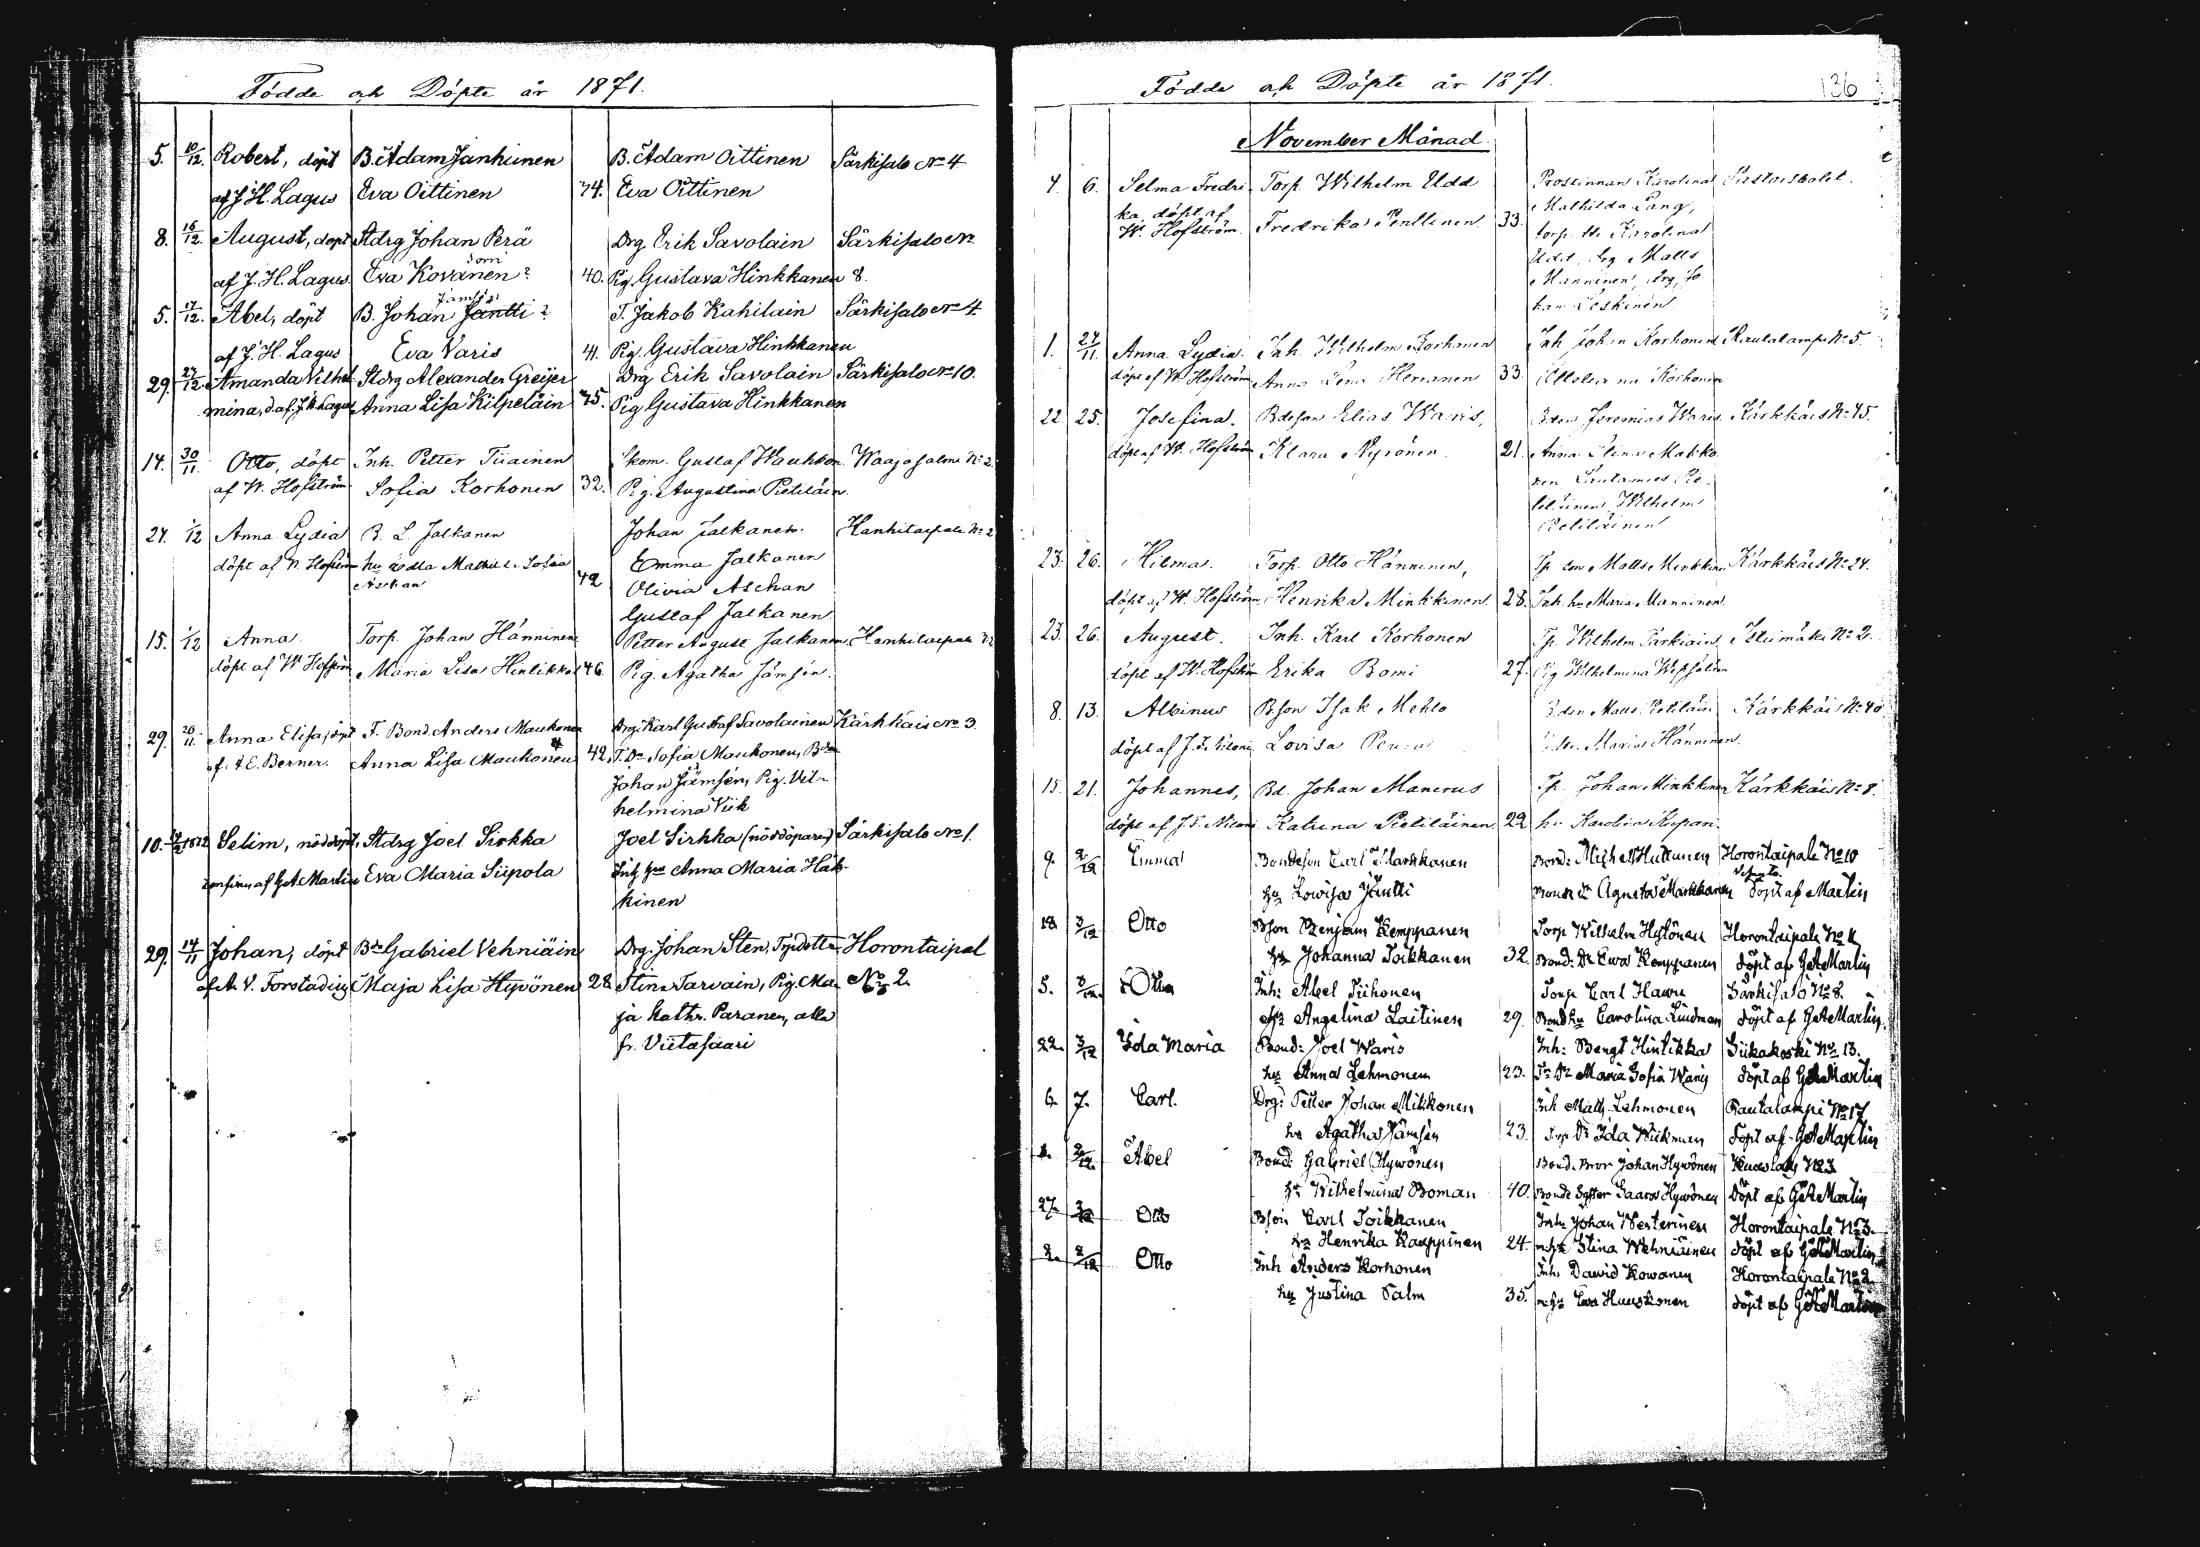 Födde och Döpte år 1871.
5. 10/12. Robert, döpt B. Adam Janhunen B. Adam Oittinen Särkisalo No 4
af J. H. Lagus Eva Oittinen 74. Eva Oittinen
8. 16/12. August, döpt Stdrg Johan Perä Drg Erik Savolain Särkisalo No
af J. H. Lagus. Eva Kovanen? 40. Pig Gustava Hinkkanen 8.
5. 17/12. Abel, döpt B. Johan Jantti? T. Jakob Kahilain Särkisalo No 4
af J. H. Lagus Eva Varis 41. Pig. Gustava Hinkkanen
29. 27/12. Amanda Vilhel Stdrg Alexander Greijer Drg Erik Savolain Särkisalo No 10.
mina, d. af J. H. Lagus Anna Lisa Kilpeläin 75. Pig Gustava Hinkkanen
14. 30/11. Otto, döpt Inh. Petter Tiiainen Skom. Gustaf Wauhkon Waajasalmi No 2.
af W. Hofström Sofia Korhonen 32. Pig. Augustina Pietiläin.
27. 1/12 Anna Lydia B. L. Jalkanen Johan Jalkanen. Hanhitaipale No 2
döpt af W. Hofström Sofia Emma Jalkanen
Aschan 42 Olivia Aschan
Gustaf Jalkanen.
15. 1/12 Anna. Torp. Johan Hänninen Petter August Jalkanen. Hanhitaipale No 2
döpt af W Hofström Maria Lisa Hintikka 46. Pig. Agatha Jämsén.
29. 26/11. Anna Elisa, döpt F. Bond. Anders Maukonen Drg. Karl Gustaf Savolainen Kärkkäis No 3
af A E. Berner. Anna Lisa Maukonen 42. T. Dr Sofia Maukonen, Bdr
Johan Jämsén, Pig. Vil-
helmina Vik
10. 1872 Selim, nöddöpt, Stdrg Joel Sirkka Joel Sirkka (nöddöparen) Särkisalo No 1.
confirm. af G. A. Martin Eva Maria Siipola Inh hu Anna Maria Häk-
kinen
29. 14/11 Johan, döpt Bde Gabriel Vehniäin Drg. Johan Sten, Tjdottr Horontaipal
af A. V. Forstadius Maja Lisa Hyvönen 28 Stina Tarvain, Pig. Ma- No 2.
ja Kathr. Paranen, alla
fr. Viitasaari
Födde och Döpte år 1871. 136
November Månad.
4. 6. Selma Fredri- Torp. Wilhelm Udd Prostinnan Karolina
ka, döpt af Mathilda Lang,
W. Hofström. Fredrika Penttinen 33. torp. dr Karolina
Udd, drg Matts
Manninen, drg, Jo
han Leskinen
1. 27/11. Anna Lydia. Inh. Wilhelm Korhonen Inh Johan Korhonen Rautalampi No 5.
döpt af W. Hofström Anna Lena Herranen 33. Korhonen
22. 25. Josefina. Bdeson Elias Waris, Jeremias Waris Kärkkäis No 45.
döpt af W. Hofström Klara Nyrönen 21. Anna Makko
nen
Wilhelm
Pietiläinen
23. 26. Hilma. Torp. Otto Hänninen, Tp son Matts Minkkinen Kärkkäis No 24.
döpt af W. Hofström Henrika Minkkinen 28. Inh. hu Maria Manninen.
23. 26. August. Inh. Karl Korhonen Tp. Wilhelm Tarkiain Istunmäki No 2.
döpt af W. Hofström Erika Bomi 27. Pig Wilhelmina
8. 13. Albinus Bson Isak Mehto Matts Pietiläin Kärkkäis No 40
döpt af Lovisa Maria Hänninen.
15. 21. Johannes, Bd. Johan Manerus Tp. Johan Minkkinen Kärkkäis No 8.
döpt af Katrina Pietiläinen. 22 hu Karolina
9. 2/12 Emma Bondeson Carl Markkanen Bond: Michel Huttunen Horontaipale No 10
hu Lowisa Jäntti Bond dr Agneta Markkanen döpt af Martin
18 3/12 Otto Bson Benjam Kemppanen Torp Wilhelm Hytönen Horontaipale No
hu Johanna Toikkanen 32. Bond: Dr Ewa Kemppanen döpt af G A Martin
5. 3/12. Otto Inh: Abel Tiihonen Torp Carl Särkisalo No 8.
hu Angelina Laitinen 29. Bond hu Carolina Lindman döpt af G A Martin.
22. 3/12 Ida Maria Bond: Joel Waris Inh: Bengt Hintikka Siikakoski No 13.
hu Anna Lehmonen 23. Maria Sofia Waris döpt af G A Martin
6. 7. Carl. Drg: Petter Johan Miikkonen Inh Matts Lehmonen Rautalampi No 17
hu Agatha Jämsén 23. Torp Dr Ida Wickman döpt af G A Martin
Abel Bond: Gabriel Hywönen Bond. Bror Johan Hywönen
hu Wilhelmina Boman 40. Bonde Syster Saara Hywönen döpt af G A Martin
27. 3/12 Otto Bson Carl Toikkanen Inh: Johan Westerinen Horontaipale No 3.
hu Henrika Kauppinen 24. Stina Wehniäinen döpt af G A Martin
2. 2/12 Otto Inh Anders Korhonen Inh. Dawid Kowanen Horontaipale No 2.
hu Justina Salm 35. Ewa Huuskonen döpt af G A Martin